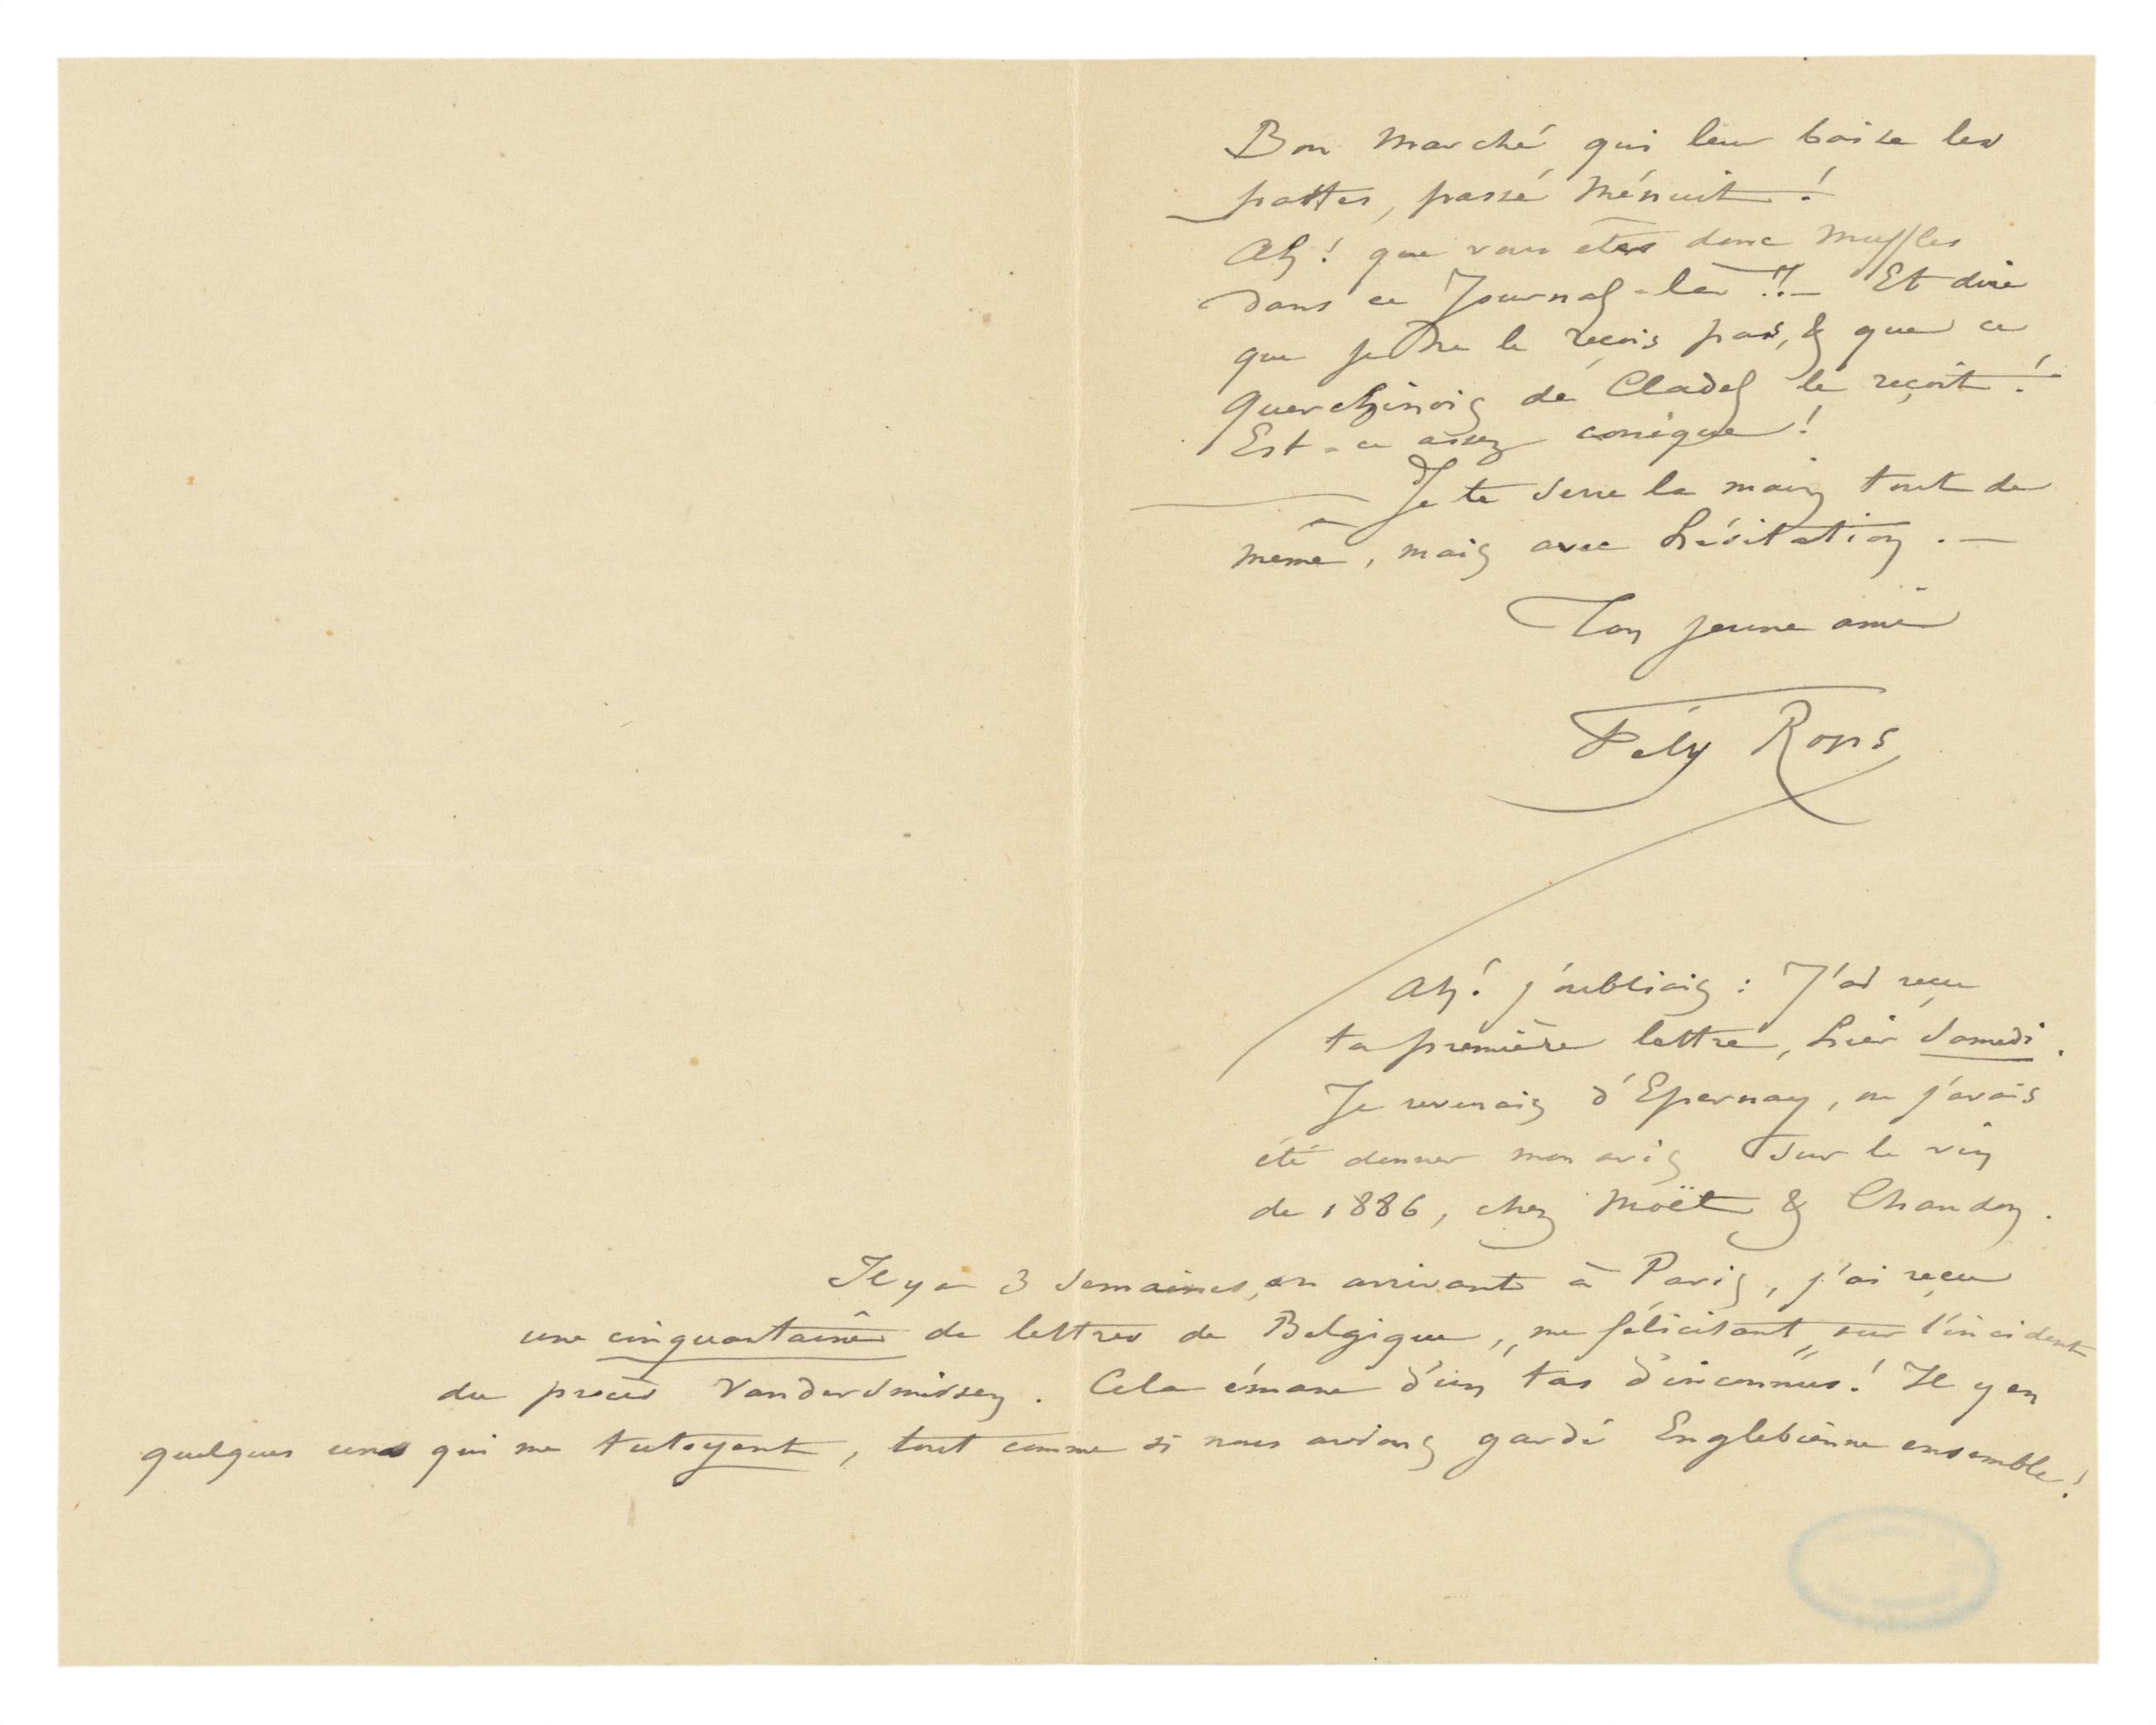 Bon Marché qui leur baise les
pattes, passé Ménuit !
Ah ! que vous êtes donc muffles
dans ce Journal-là !! – Et dire
que je ne le reçois pas, & que ce
Querchinois de Cladel le reçoit !
Est-ce assez comique !
Je te serre la main tout de
même, mais avec hésitation . –
Ton jeune ami
Fély Rops
Ah ! j'oubliais : J'ai reçu
ta première lettre, hier Samedi .
Je revenais d'Epernay, ou j'avais
été donner mon avis sur le vin
de 1886, chez Moët & Chandon .
Il y a 3 Semaines, en arrivant à Paris, j'ai reçu
une cinquantaine de lettres de Belgique, „me félicitant„ sur l'incident
du procès Vandersmissen . Cela émane d'un tas d'inconnus ! Il y en
quelques uns qui me tutoyent, tout comme si nous avions gardé Englebienne ensemble !